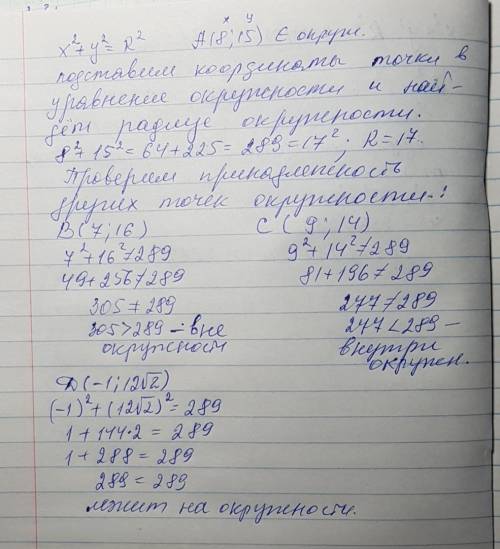 x² + y² = R²
x y
A(8; 15) ∈ окружн.
подставим координаты точки в
уравнение окружности и най-
дём радиус окружности.
8² + 15² = 64 + 225 = 289 = 17²; R = 17.
Проверим принадлежность
других точек окружности:
B(7; 16)
7² + 16² ≠ 289
49 + 256 ≠ 289
305 ≠ 289
305 > 289 – вне
окружности
C(9; 14)
9² + 14² ≠ 289
81 + 196 ≠ 289
277 ≠ 289
247 < 289 –
внутри
окружн.
D(-1; 12√2)
(-1)² + (12√2)² = 289
1 + 144*2 = 289
1 + 288 = 289
289 = 289
лежит на окружности.